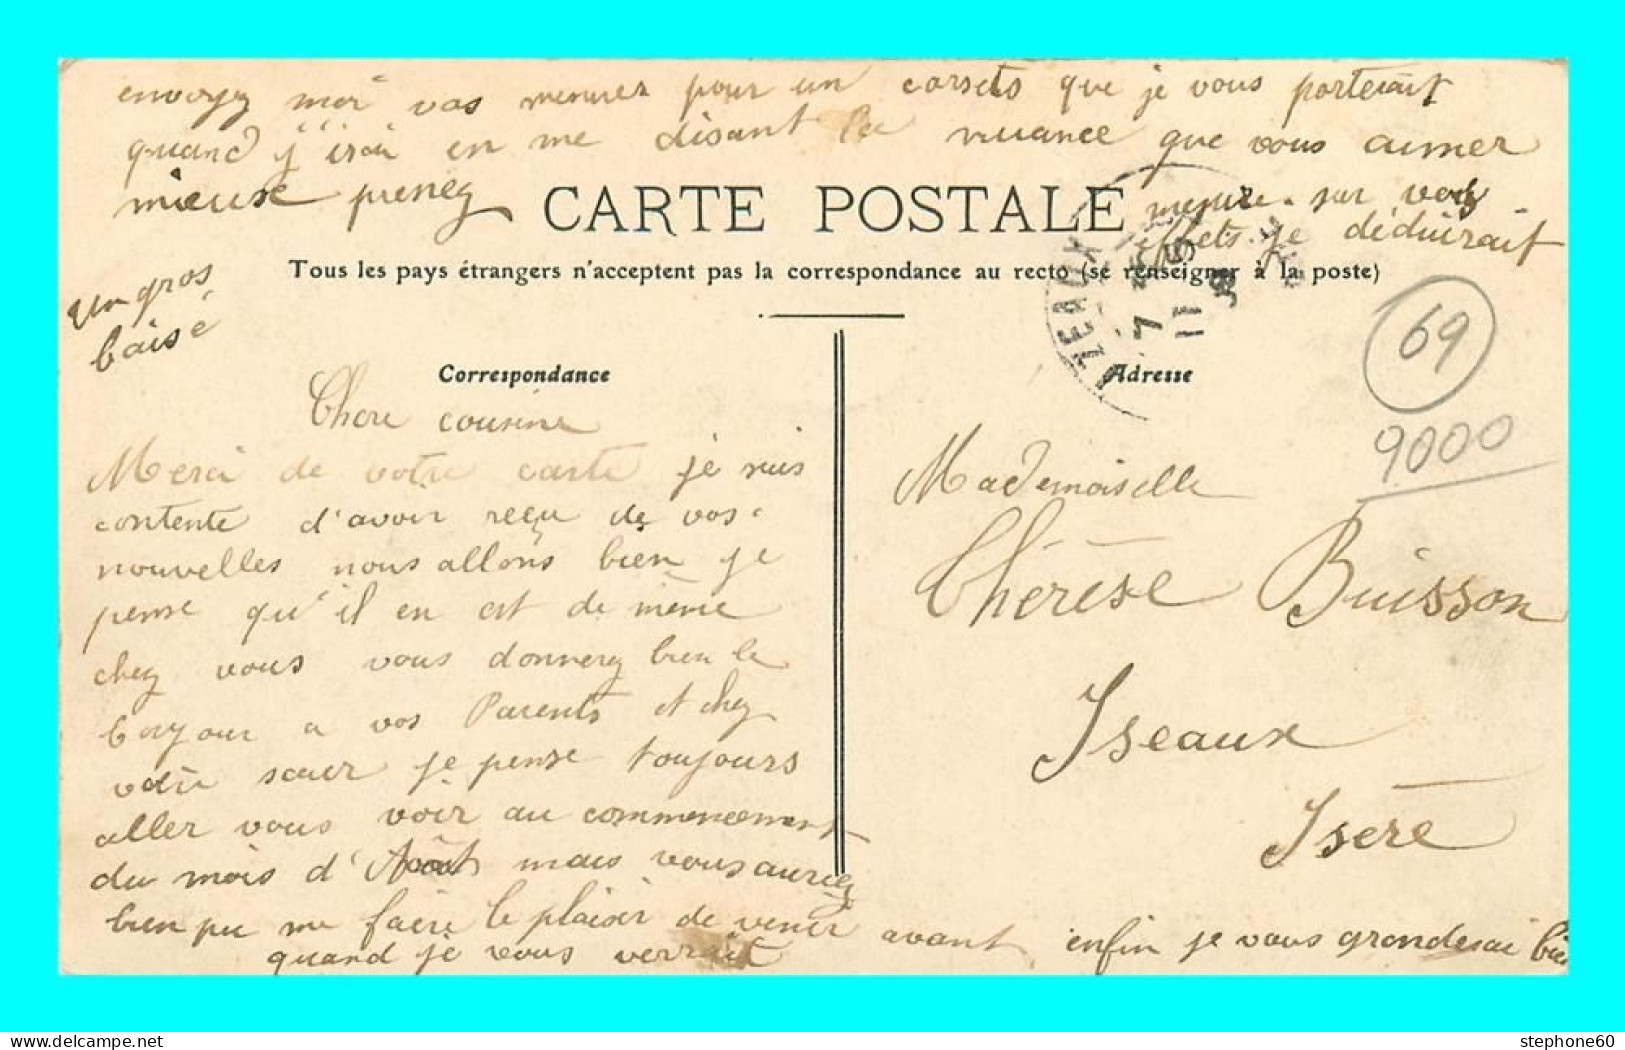 envoyez moi vos mesures pour un corsets que je vous porterait
quand j'irai en me disant la nuance que vous aimer
mieuse prenez mesure sur vos
effets je déduirait
CARTE POSTALE
Tous les pays étrangers n'acceptent pas la correspondance au recto (se renseigner à la poste)
Un gros
baisé
Correspondance
Chere cousine
Merci de votre carte je suis
contente d'avoir reçu de vos
nouvelles nous allons bien je
pense qu'il en est de même
chez vous vous donnerez bien le
bonjour a vos Parents et chez
votre sœur je pense toujours
aller vous voir au commencement
du mois d'Août mais vous auriez
bien pu me faire le plaisir de venir avant enfin je vous gronderai bien
quand je vous verrait
IZEAUX
7
11
Adresse
69
9000
Mademoiselle
Thérèse Buisson
Iseaux
Isère
stephone60